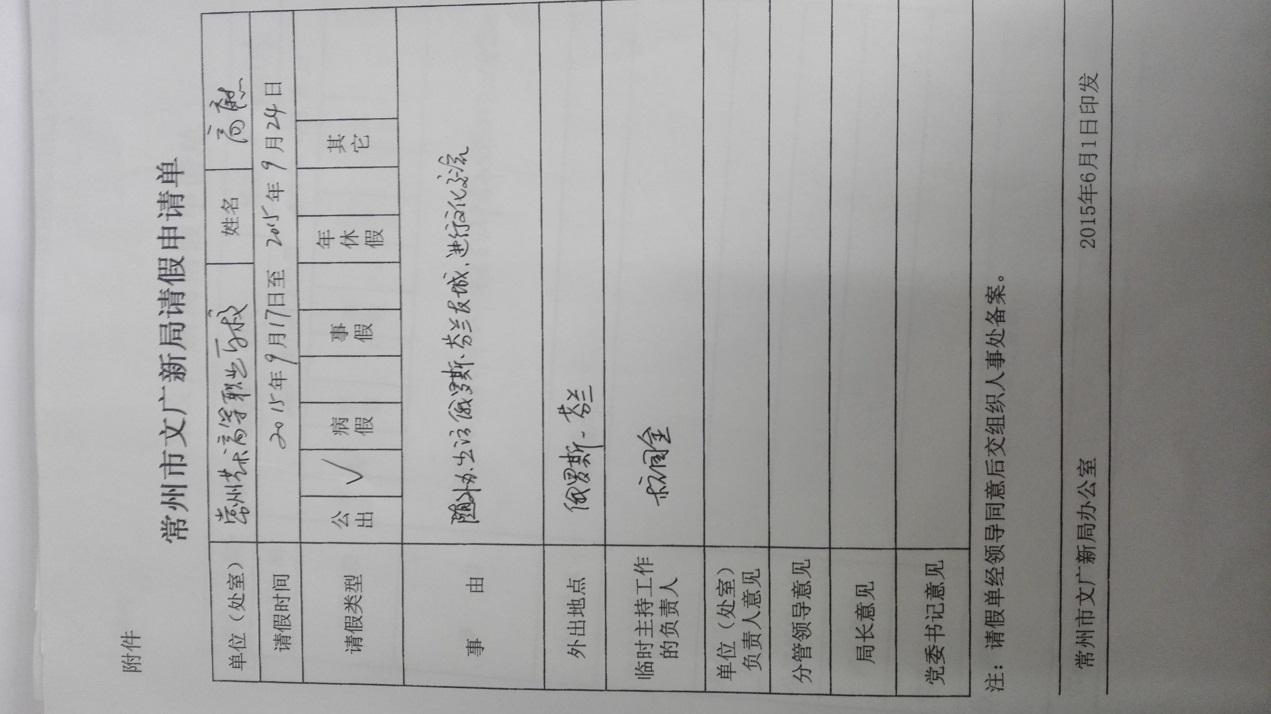 附件
常州市文广新局请假申请单
单位（处室） 常州艺术高等职业学校 姓名 高
请假时间 2015年9月17日至 2015年9月24日
请假类型 公出 √ 病假 事假 年休假 其它
事由 随外办出访俄罗斯、芬兰友城，进行文化交流
外出地点 俄罗斯、芬兰
临时主持工作的负责人 国全
单位（处室）负责人意见
分管领导意见
局长意见
党委书记意见
注：请假单经领导同意后交组织人事处备案。
常州市文广新局办公室 2015年6月1日印发